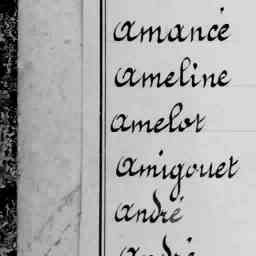 Amancé
Ameline
Amelot
Amigouet
André
André